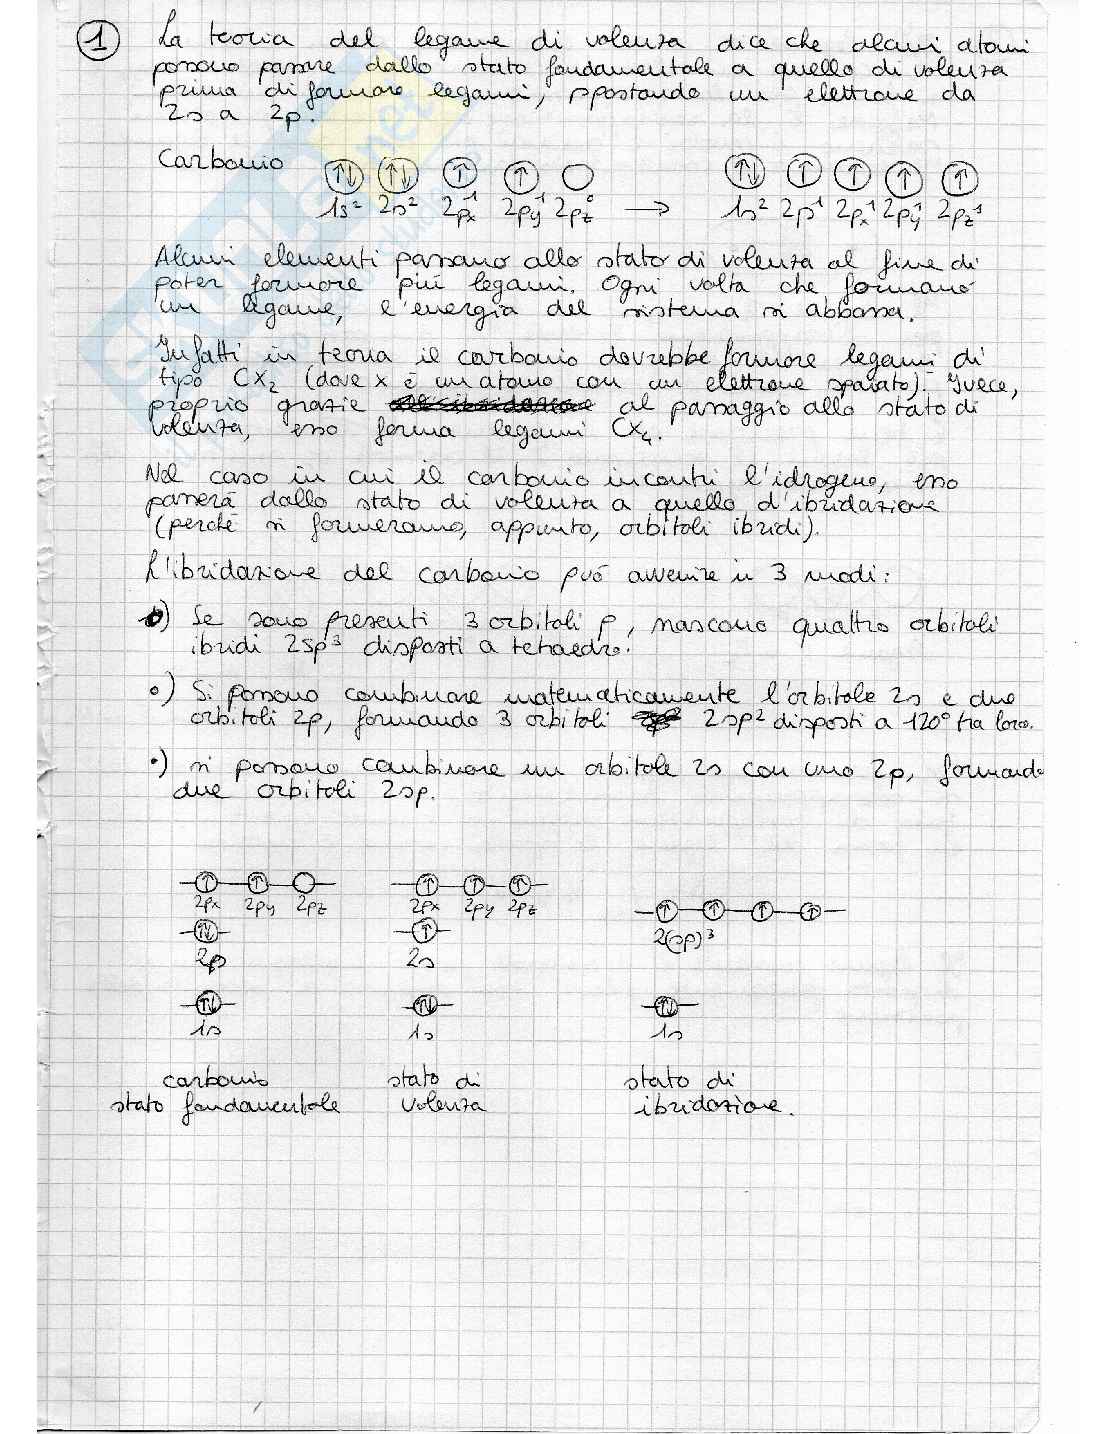 1 La teoria del legame di valenza dice che alcuni atomi
possono passare dallo stato fondamentale a quello di valenza
prima di formare legami, spostando un elettrone da
2s a 2p.
Carbonio
1s² 2s² 2px¹ 2py¹ 2pz⁰ → 1s² 2p¹ 2px¹ 2py¹ 2pz¹
Alcuni elementi passano allo stato di valenza al fine di
poter formare più legami. Ogni volta che formano
un legame, l'energia del sistema si abbassa.
Infatti in teoria il carbonio dovrebbe formare legami di
tipo CX₂ (dove x è un atomo con un elettrone spaiato). Ivece,
proprio grazie al passaggio allo stato di
valenza, esso forma legami CX₄.
Nel caso in cui il carbonio incontri l'idrogeno, esso
passerà dallo stato di valenza a quello d'ibridazione
(perché si formeranno, appunto, orbitali ibridi).
L'ibridazione del carbonio può avvenire in 3 modi:
•) Se sono presenti 3 orbitali p, nascono quattro orbitali
ibridi 2sp³ disposti a tetraedro.
•) Si possono combinare matematicamente l'orbitale 2s e due
orbitali 2p, formando 3 orbitali 2sp² disposti a 120° tra loro.
•) si possono combinare un orbitale 2s con uno 2p, formando
due orbitali 2sp.
2px 2py 2pz 2px 2py 2pz
2(sp)³
2p 2s
1s 1s 1s
carbonio stato di stato di
stato fondamentale valenza ibridazione.